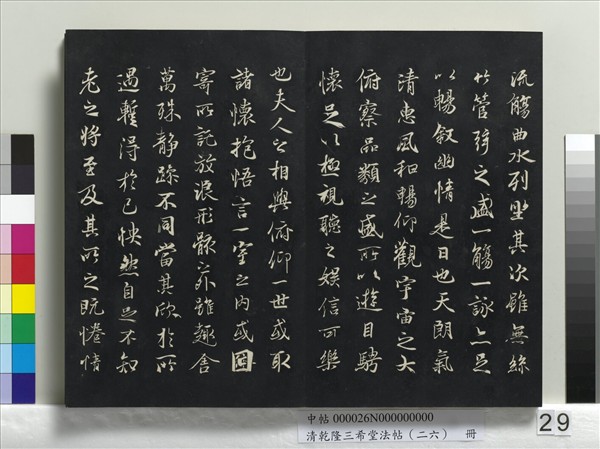 流觴曲水列坐其次雖無絲
竹管弦之盛一觴一詠亦足
以暢敘幽情是日也天朗氣
清惠風和暢仰觀宇宙之大
俯察品類之盛所以遊目騁
懷足以極視聽之娛信可樂
也夫人之相與俯仰一世或取
諸懷抱悟言一室之內或因
寄所託放浪形骸之外雖趣舍
萬殊靜躁不同當其欣於所
遇暫得於己怏然自足不知
老之將至及其所之既惓情
中帖 000026N000000000
清乾隆三希堂法帖（二六） 冊
29